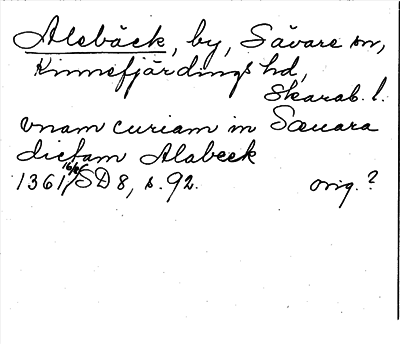 Alebäck, by, Sävare sn,
Kinnefjärdings hd,
Skarab. l.
unam curiam in Sæuara
dictam Alabeck
1361 16/6 SD 8, s. 92. orig.?